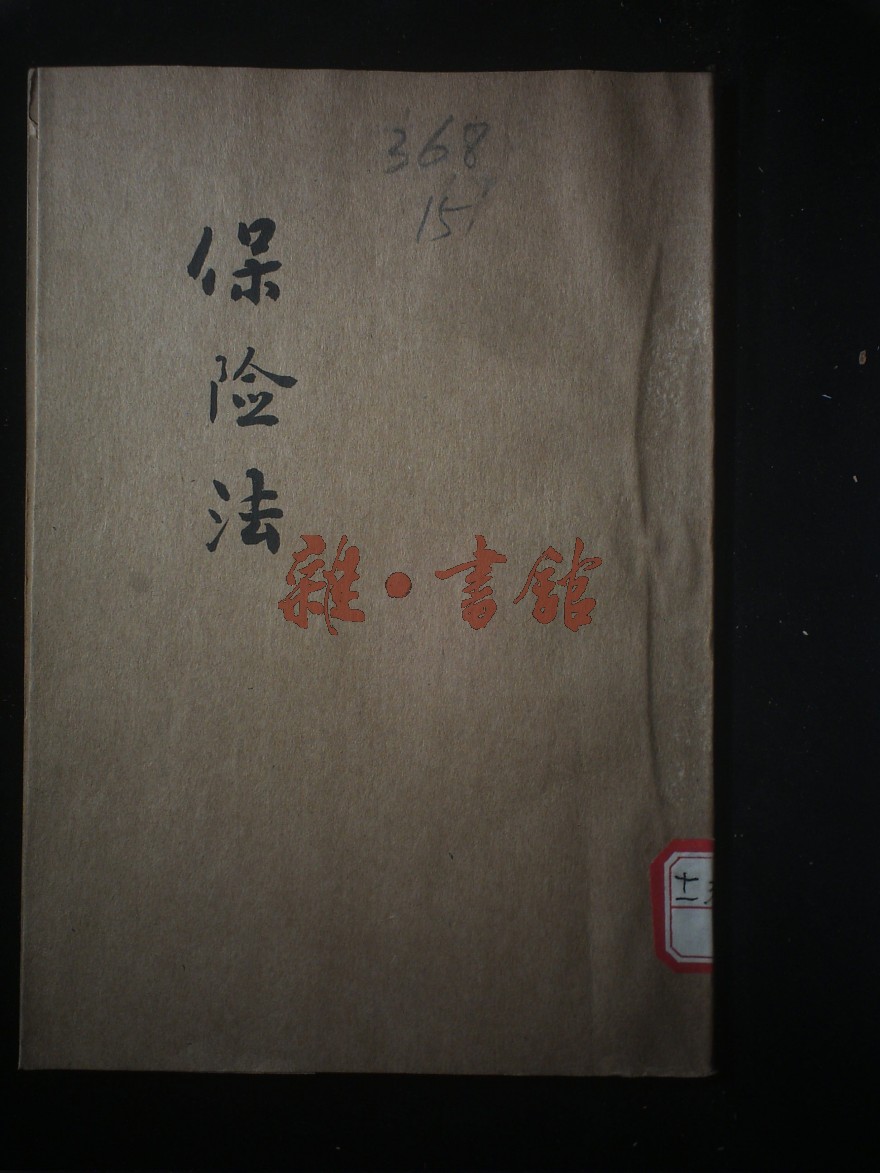 368
15
保险法
雜·書館